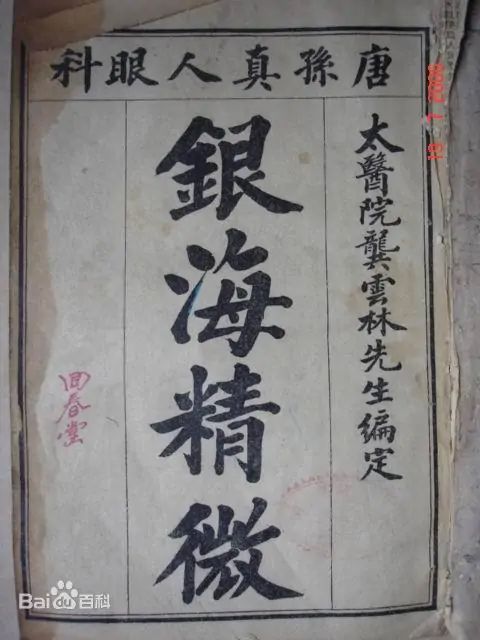 唐孫真人眼科
太醫院龔雲林先生編定
銀海精微
回春堂
Bai百科